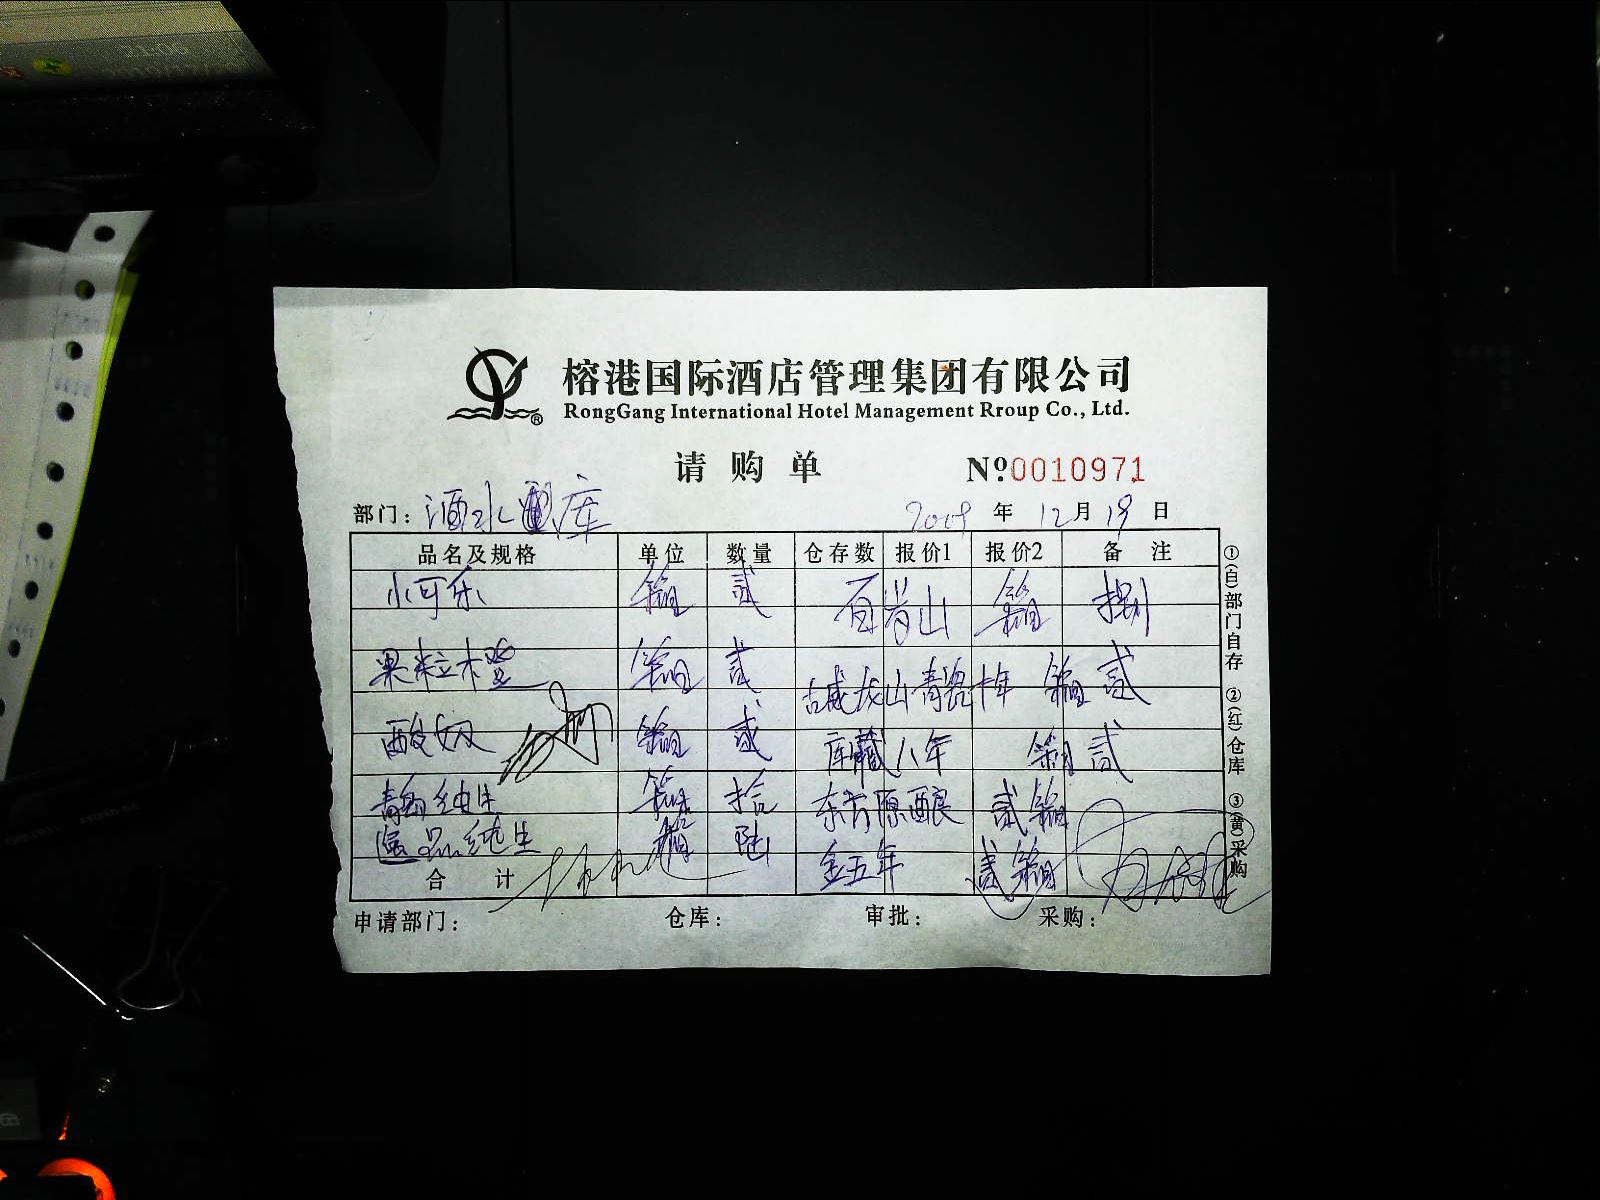 榕港国际酒店管理集团有限公司
RongGang International Hotel Management Rroup Co., Ltd.
请购单 №0010971
部门: 酒水 库 2009 年 12 月 19 日
品名及规格 单位 数量 仓存数 报价1 报价2 备注
小可乐 箱 贰 百岁山 箱 捌
果粒橙 箱 贰 古越龙山青瓷十年 箱 贰
酸奶 箱 贰 库藏八年 箱 贰
纯生 箱 拾 东方原酿 贰箱
逸品纯生 箱 陆 金五年 贰箱
合计
申请部门: 仓库: 审批: 采购:
①(白)部门自存 ②(红)仓库 ③(黄)采购